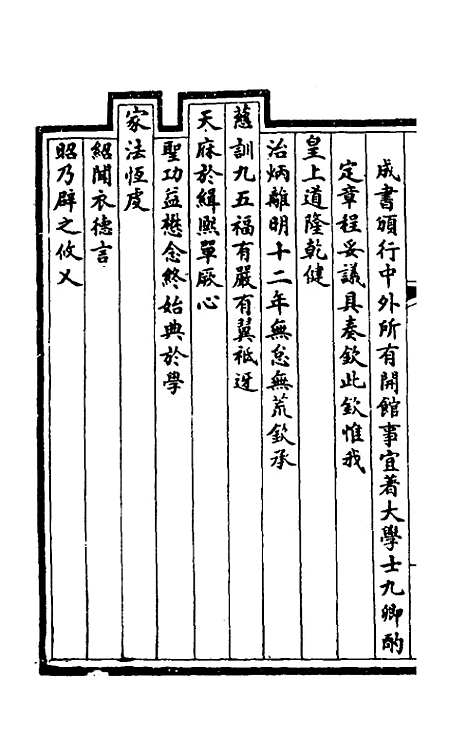 成書頒行中外所有開館事宜著大學士九卿酌
定章程妥議具奏欽此欽惟我
皇上道隆乾健
治炳離明十二年無怠無荒欽承
慈訓九五福有嚴有翼祗迓
天庥於緝熙單厥心
聖功益懋念終始典於學
家法恆虔
紹聞衣德言
昭乃辟之攸乂